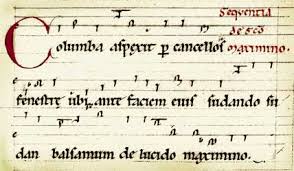 Sequentia
de sco
Columba aspexit ꝑ cancellos maximino.
fenestre ubi ante faciem eius sudando su
dan balsamum de lucido maximino.